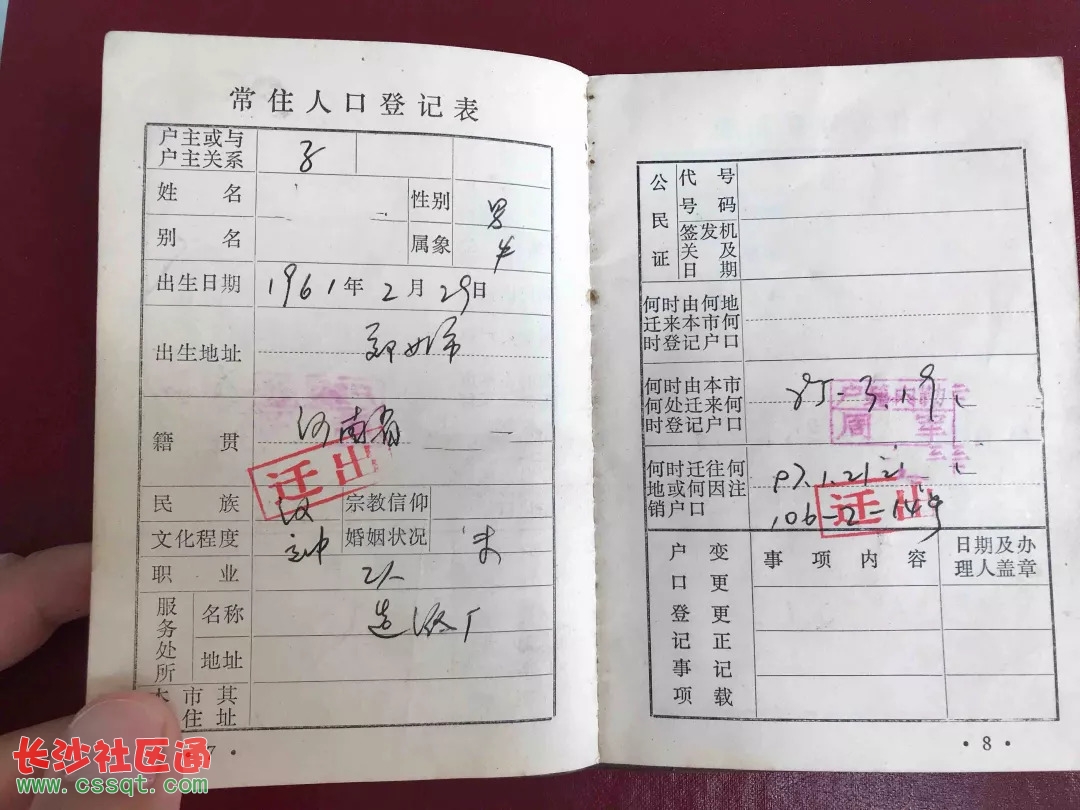 常住人口登记表
户主或与
户主关系 子
姓名 性别 男
别名 属象 牛
出生日期 1961年2月29日
出生地址
籍贯 河南省
迁出
民族 汉 宗教信仰
文化程度 婚姻状况 未
职业 工人
服务处所 名称 造纸厂
地址
本市其
住址
·7·
公民证 代号
号码
签发机
关及
日期
何时由何地
迁来本市何
时登记户口
何时由本市
何处迁来何
时登记户口 85-3.19
周
何时迁往何
地或何因注
销户口
迁出
户口登记事项 变更更正记载
事项内容 日期及办
理人盖章
·8·
长沙社区通
www.cssqt.com